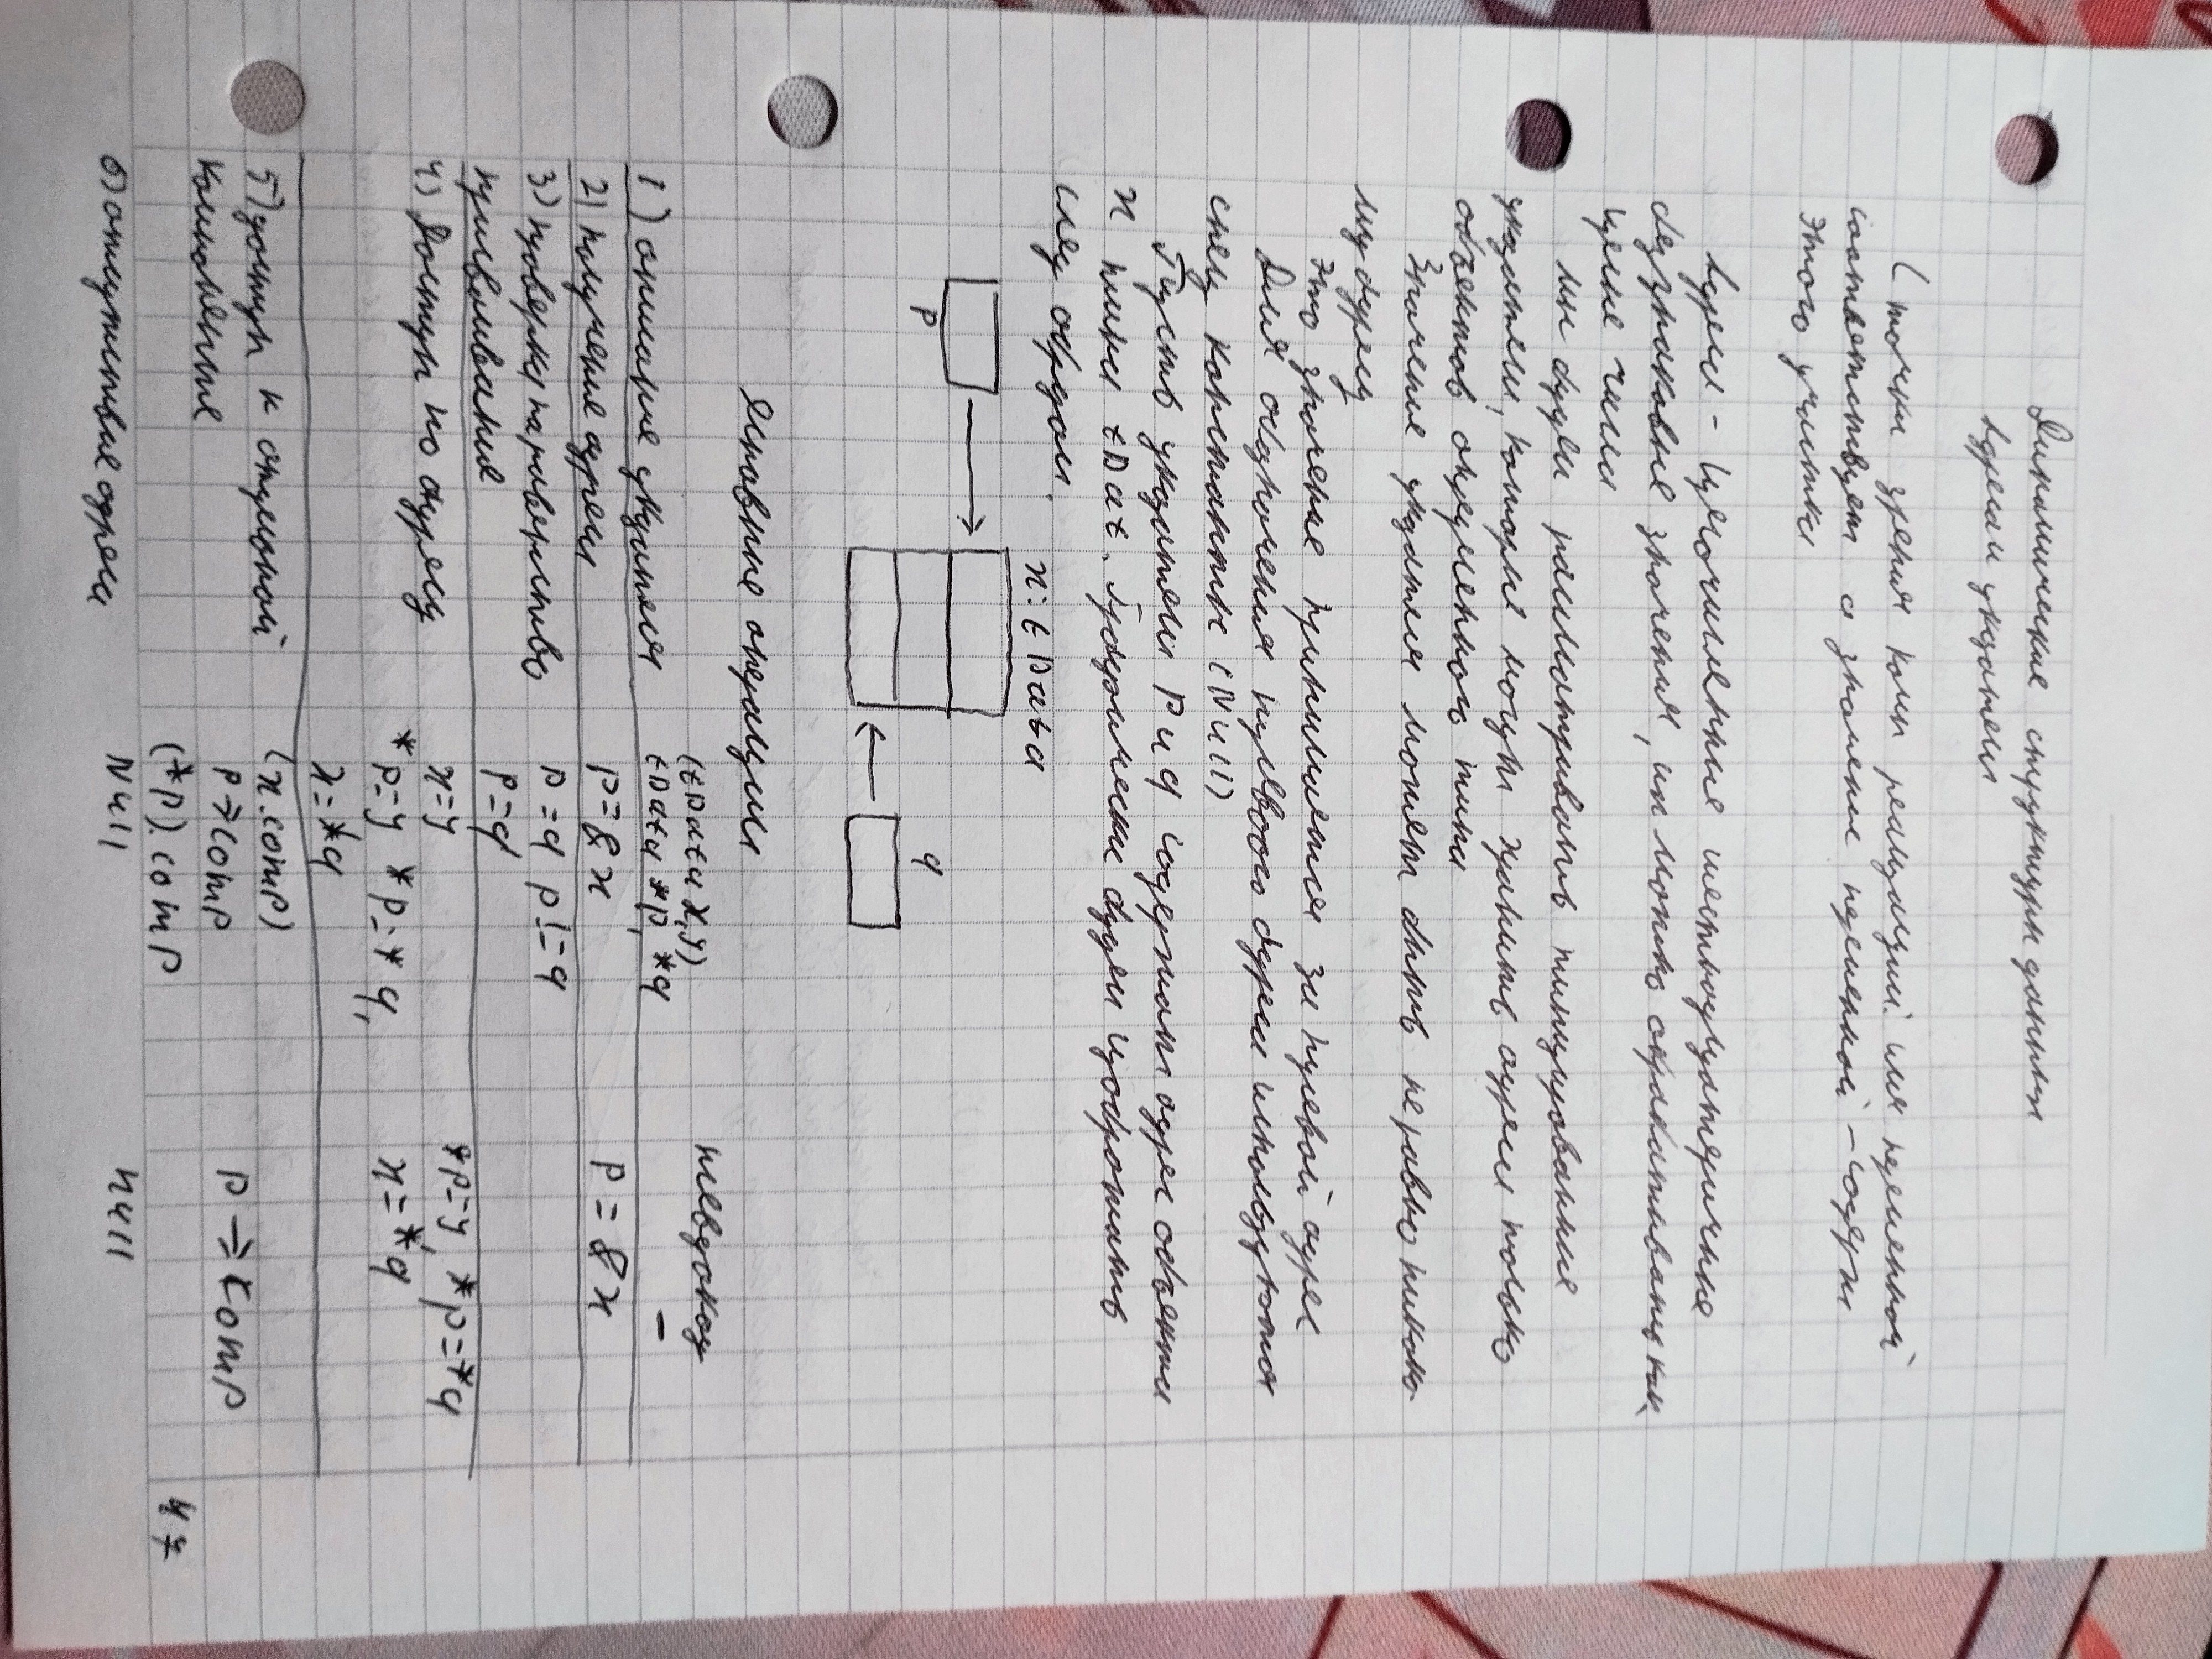 Динамические структуры данных
Адреса и указатели
С точки зрения комп реализации. имя переменной
соответствует а значение переменной - содерж
этого участка
Адреса - целочисленные шестнадцатеричные
беззнаковые значения, их можно обрабатывать как
целые числа
Мы будем рассматривать типизированные
указатели, которые могут хранить адреса только
объектов определенного типа
Значение указателя может быть не равно никако-
му адресу
Это значение принимается за нулевой адрес
Для обозначения нулевого адреса используются
спец константы (Null)
Пусть указатели P и q содержат адрес объекта
x типа tDat. Графически будем изображать
след образом.
x: tData
P
q
основные операции
(tData x, y) псевдокод
1) описание указателя tData *p, *q –
2) получение адреса p=&x p = &x
3) проверка на равенство p=q p!=q
присваивания p=q
4) Доступ по адресу x=y *p=y, *p=*q
*p=y *p=*q, x=*q
x=*q
5) доступ к отдельной (x.comp)
компоненте p→comp p → comp
(*p).comp
47
6) отсутствие адреса Null null